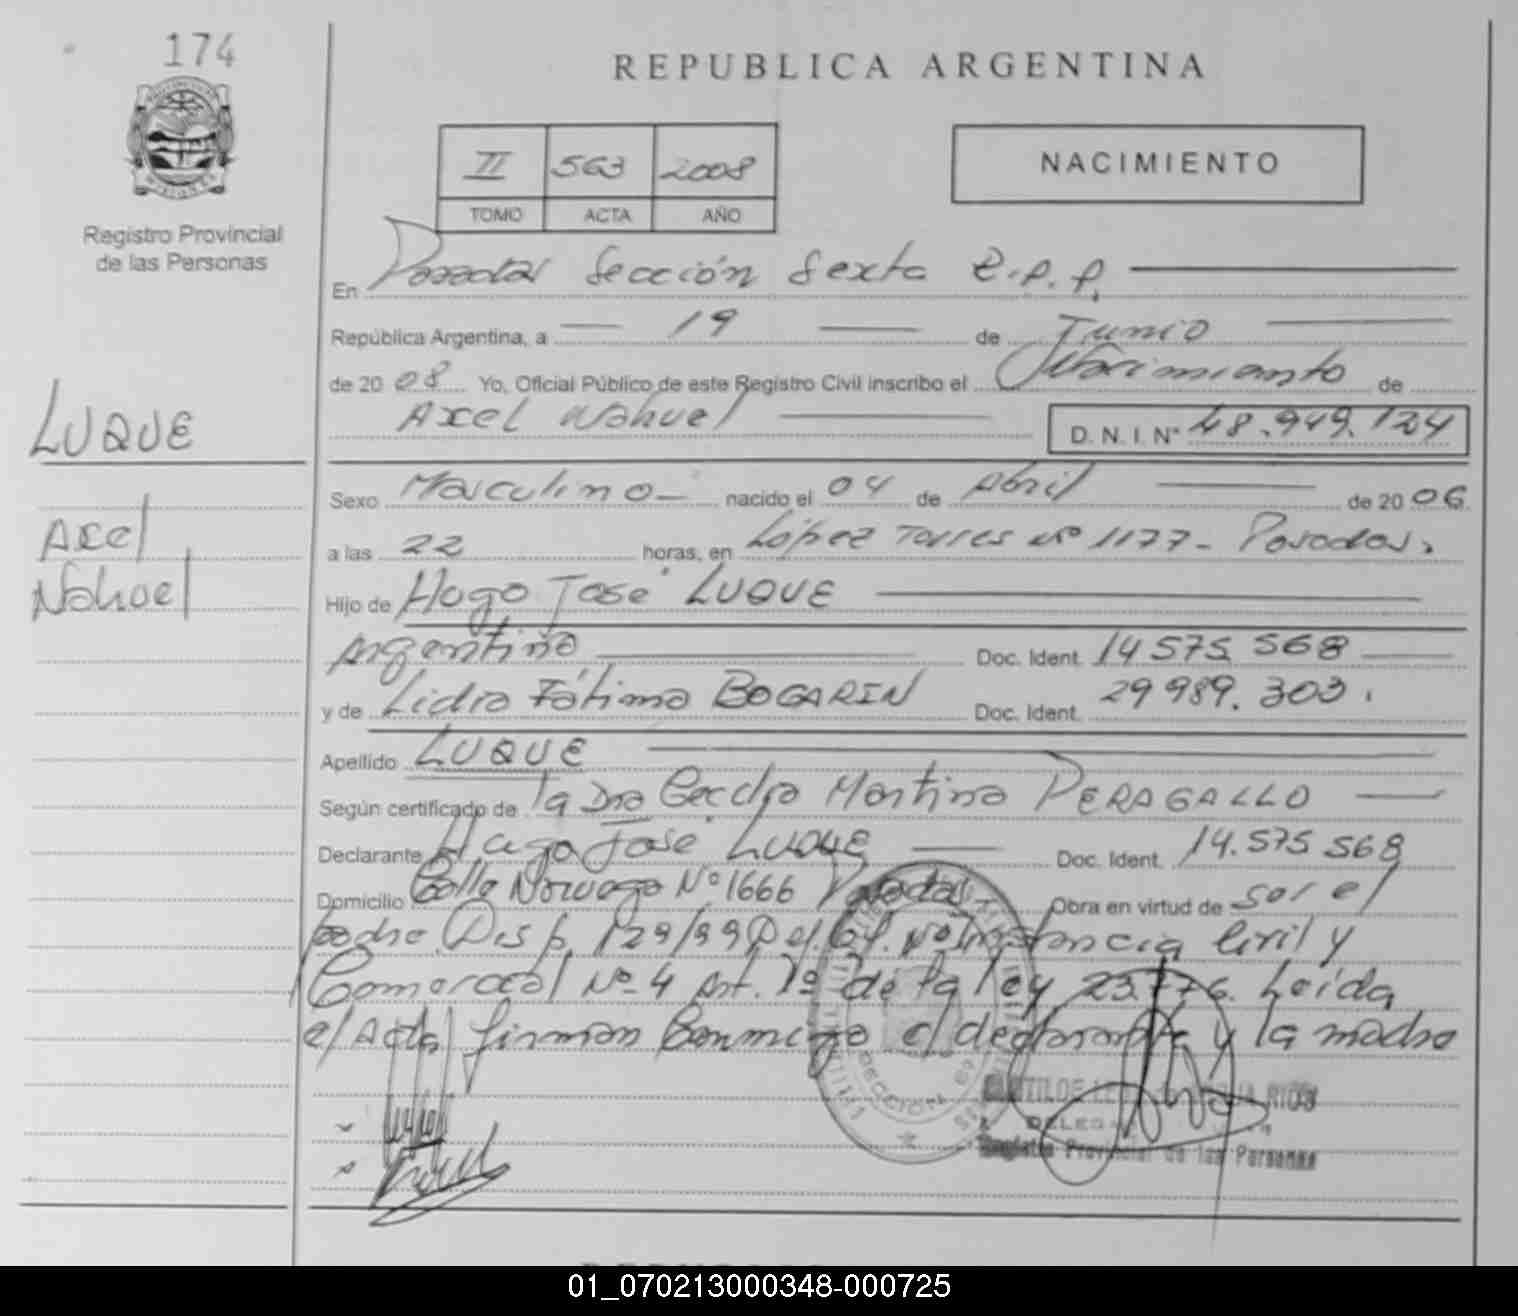 174
REPUBLICA ARGENTINA
II 563 2008
TOMO ACTA AÑO
NACIMIENTO
Registro Provincial
de las Personas
En Posadas Sección Sexta R.P.P.
República Argentina, a 19 de Junio
de 20 08 Yo, Oficial Público de este Registro Civil inscribo el Nacimiento de
Axel Nahuel D. N. I. Nº 48.949.124
LUQUE
Axel
Nahuel
Sexo Masculino nacido el 04 de Abril de 20 06
a las 22 horas, en López Torres Nº 1177 - Posadas.
Hijo de Hugo José LUQUE
Argentino Doc. Ident. 14 575 568
y de Lidia Fátima BOGARIN Doc. Ident. 29 989. 303.
Apellido LUQUE
Según certificado de la Dra Cecilia Martina PERAGALLO
Declarante Hugo José LUQUE Doc. Ident. 14.575 568
Domicilio Calle Noruega Nº 1666 Posadas Obra en virtud de ser el
padre Disp. 129/99 Instancia Civil y
Comercial Nº 4 Art. 1º de la ley Leída
el Acta firman conmigo el declarante y la madre
RIOS
DELEGADA
Registro Provincial de las Personas
01_070213000348-000725